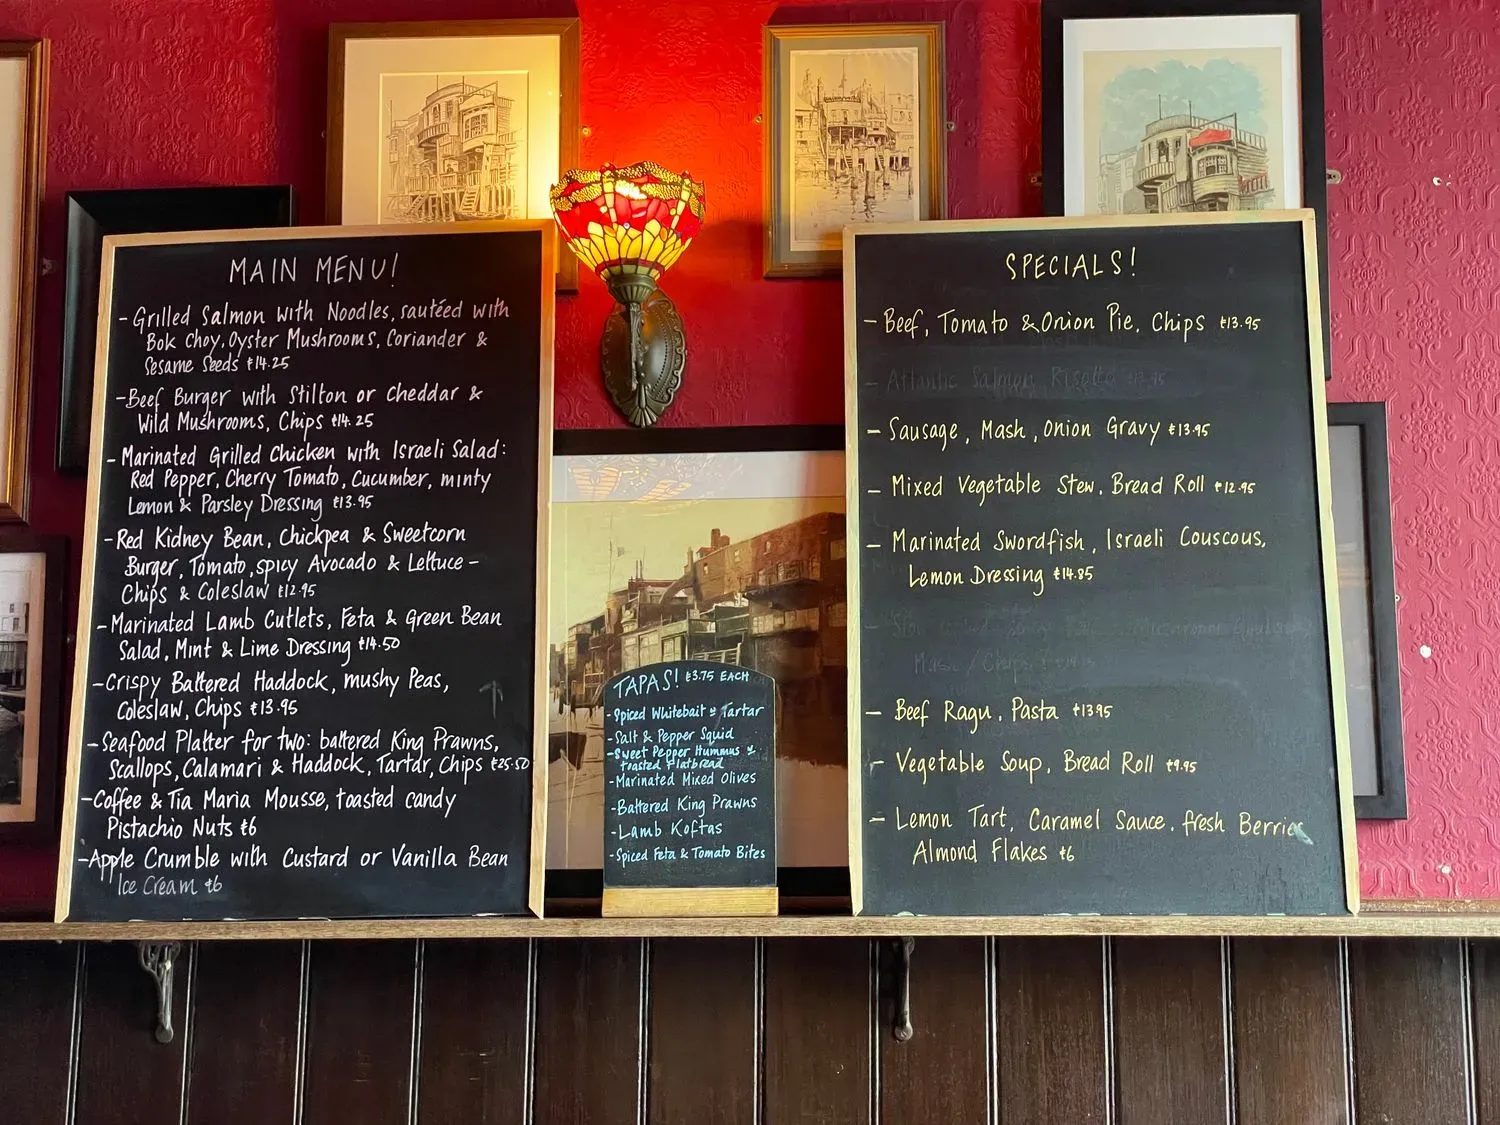 MAIN MENU!
- Grilled Salmon with Noodles, sautéed with
Bok Choy, Oyster Mushrooms, Coriander &
Sesame Seeds £14.25
- Beef Burger with Stilton or Cheddar &
Wild Mushrooms, Chips £14.25
- Marinated Grilled Chicken with Israeli Salad:
Red Pepper, Cherry Tomato, Cucumber, minty
Lemon & Parsley Dressing £13.95
- Red Kidney Bean, Chickpea & Sweetcorn
Burger, Tomato, spicy Avocado & Lettuce -
Chips & Coleslaw £12.95
- Marinated Lamb Cutlets, Feta & Green Bean
Salad, Mint & Lime Dressing £14.50
- Crispy Battered Haddock, mushy Peas,
Coleslaw, Chips £13.95
- Seafood Platter for two: battered King Prawns,
Scallops, Calamari & Haddock, Tartar, Chips £25.50
- Coffee & Tia Maria Mousse, toasted candy
Pistachio Nuts £6
- Apple Crumble with Custard or Vanilla Bean
Ice Cream £6
TAPAS! £3.75 EACH
- Spiced Whitebait & Tartar
- Salt & Pepper Squid
- Sweet Pepper Hummus &
toasted Flatbread
- Marinated Mixed Olives
- Battered King Prawns
- Lamb Koftas
- Spiced Feta & Tomato Bites
SPECIALS!
- Beef, Tomato & Onion Pie, Chips £13.95
- Atlantic Salmon Risotto
- Sausage, Mash, Onion Gravy £13.95
- Mixed Vegetable Stew, Bread Roll £12.95
- Marinated Swordfish, Israeli Couscous,
Lemon Dressing £14.85
Mash / Chips
- Beef Ragu, Pasta £13.95
- Vegetable Soup, Bread Roll £9.95
- Lemon Tart, Caramel Sauce, fresh Berries
Almond Flakes £6